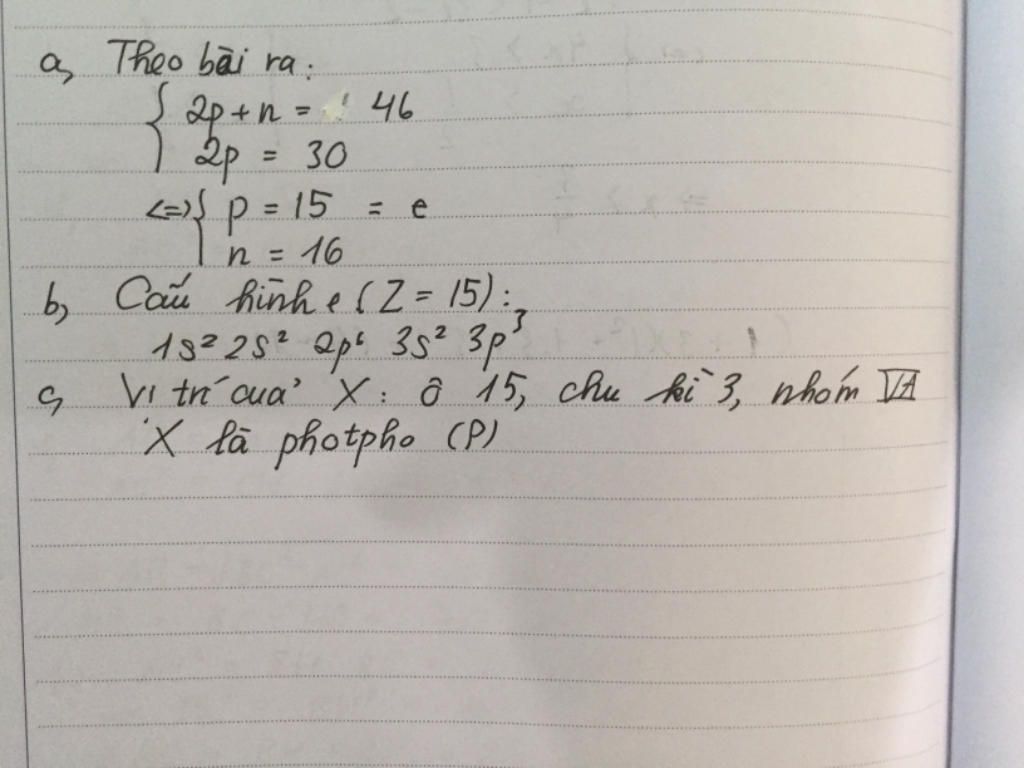 a, Theo bài ra:
{ 2p + n = 46
2p = 30
<=> { p = 15 = e
n = 16
b, Cấu hình e (Z = 15):
1s² 2s² 2p⁶ 3s² 3p³
c, Vị trí của X: ô 15, chu kì 3, nhóm VA
X là photpho (P)